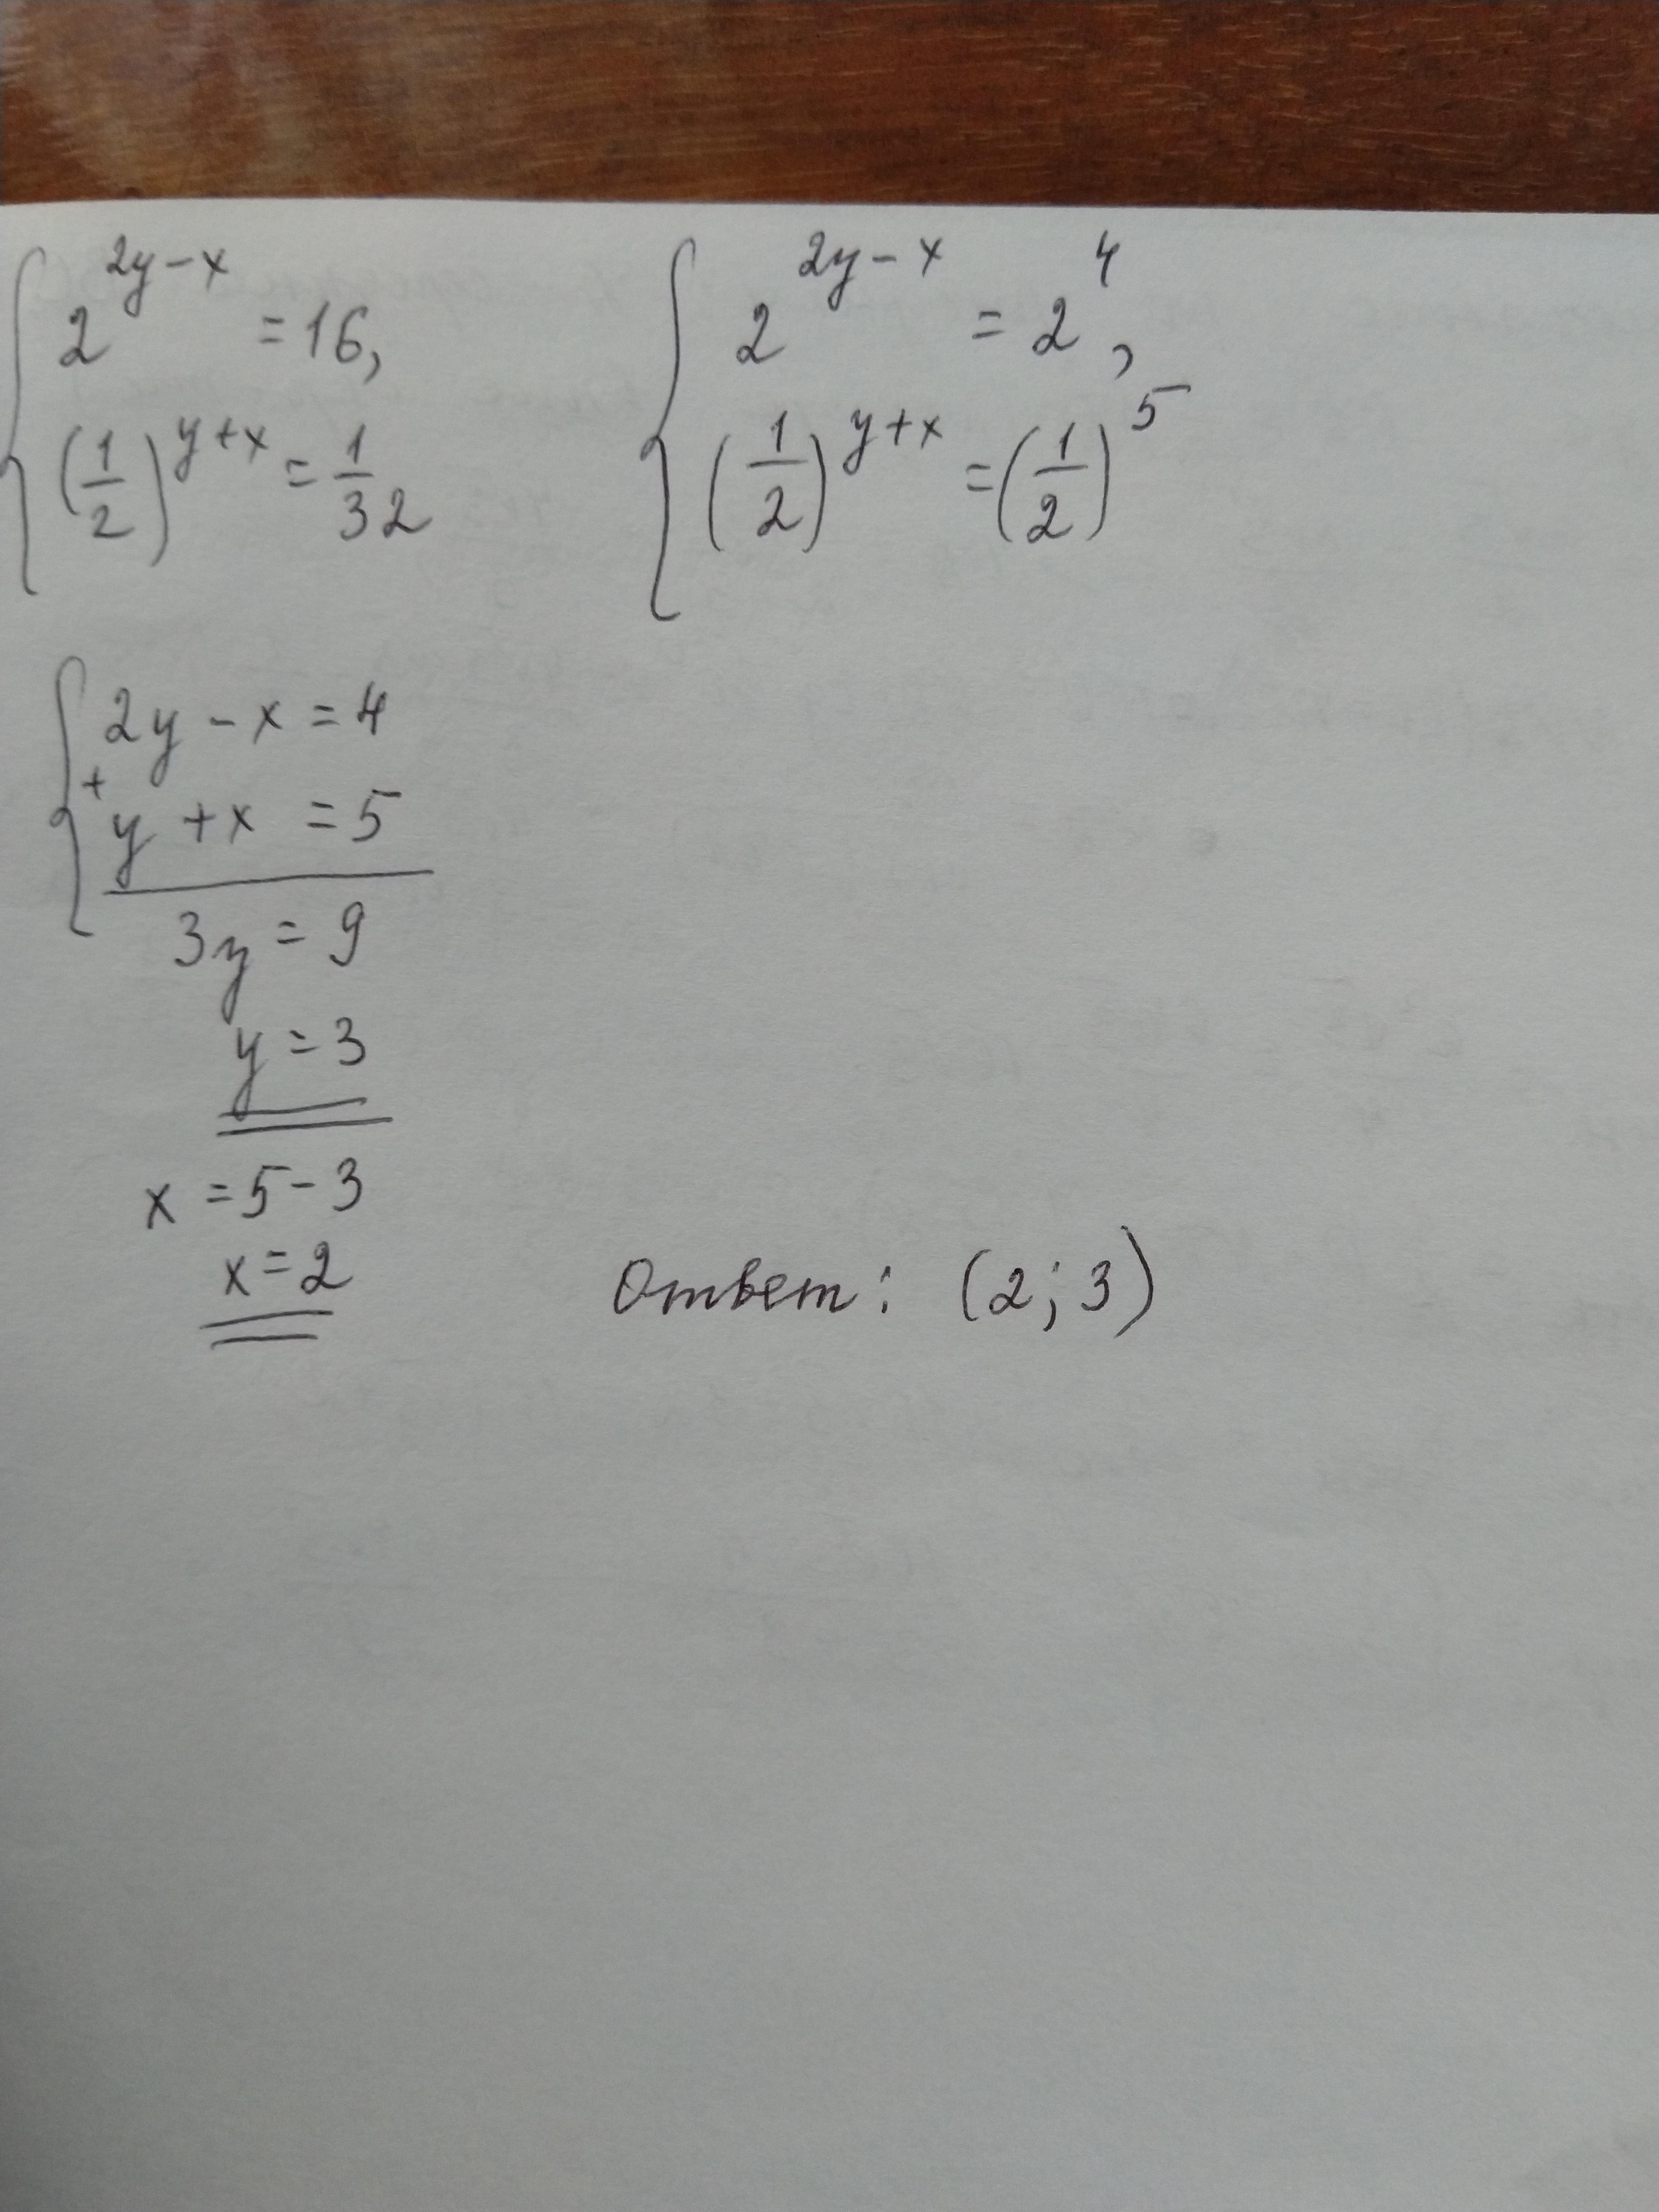 2^(2y-x) = 16,
(1/2)^(y+x) = 1/32
2^(2y-x) = 2^4,
(1/2)^(y+x) = (1/2)^5
2y - x = 4
+
y + x = 5
3y = 9
y = 3
x = 5 - 3
x = 2
Ответ: (2; 3)